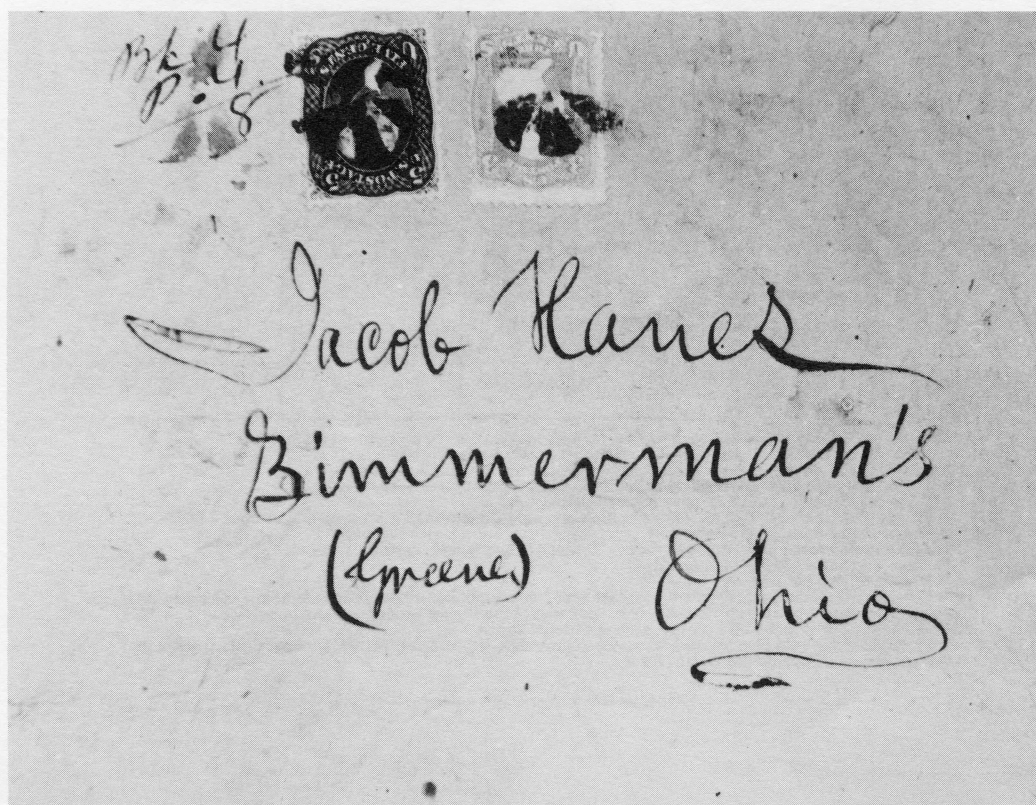 Bk. 4
P. 48
Jacob Hanes
Zimmerman's
(Greene)
Ohio